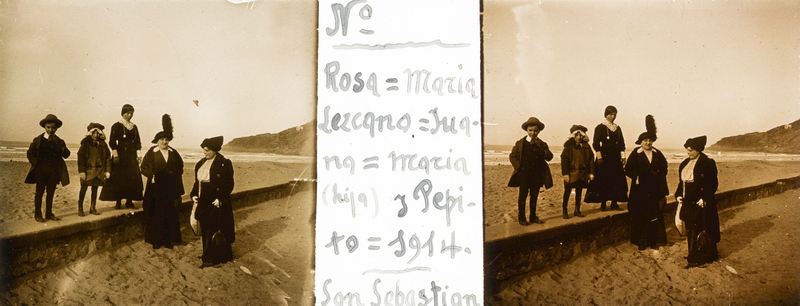 Nº
Rosa = Maria
Lezcano = Jua-
na = Maria
(hija) y Pepi-
to = 1914.
San Sebastian